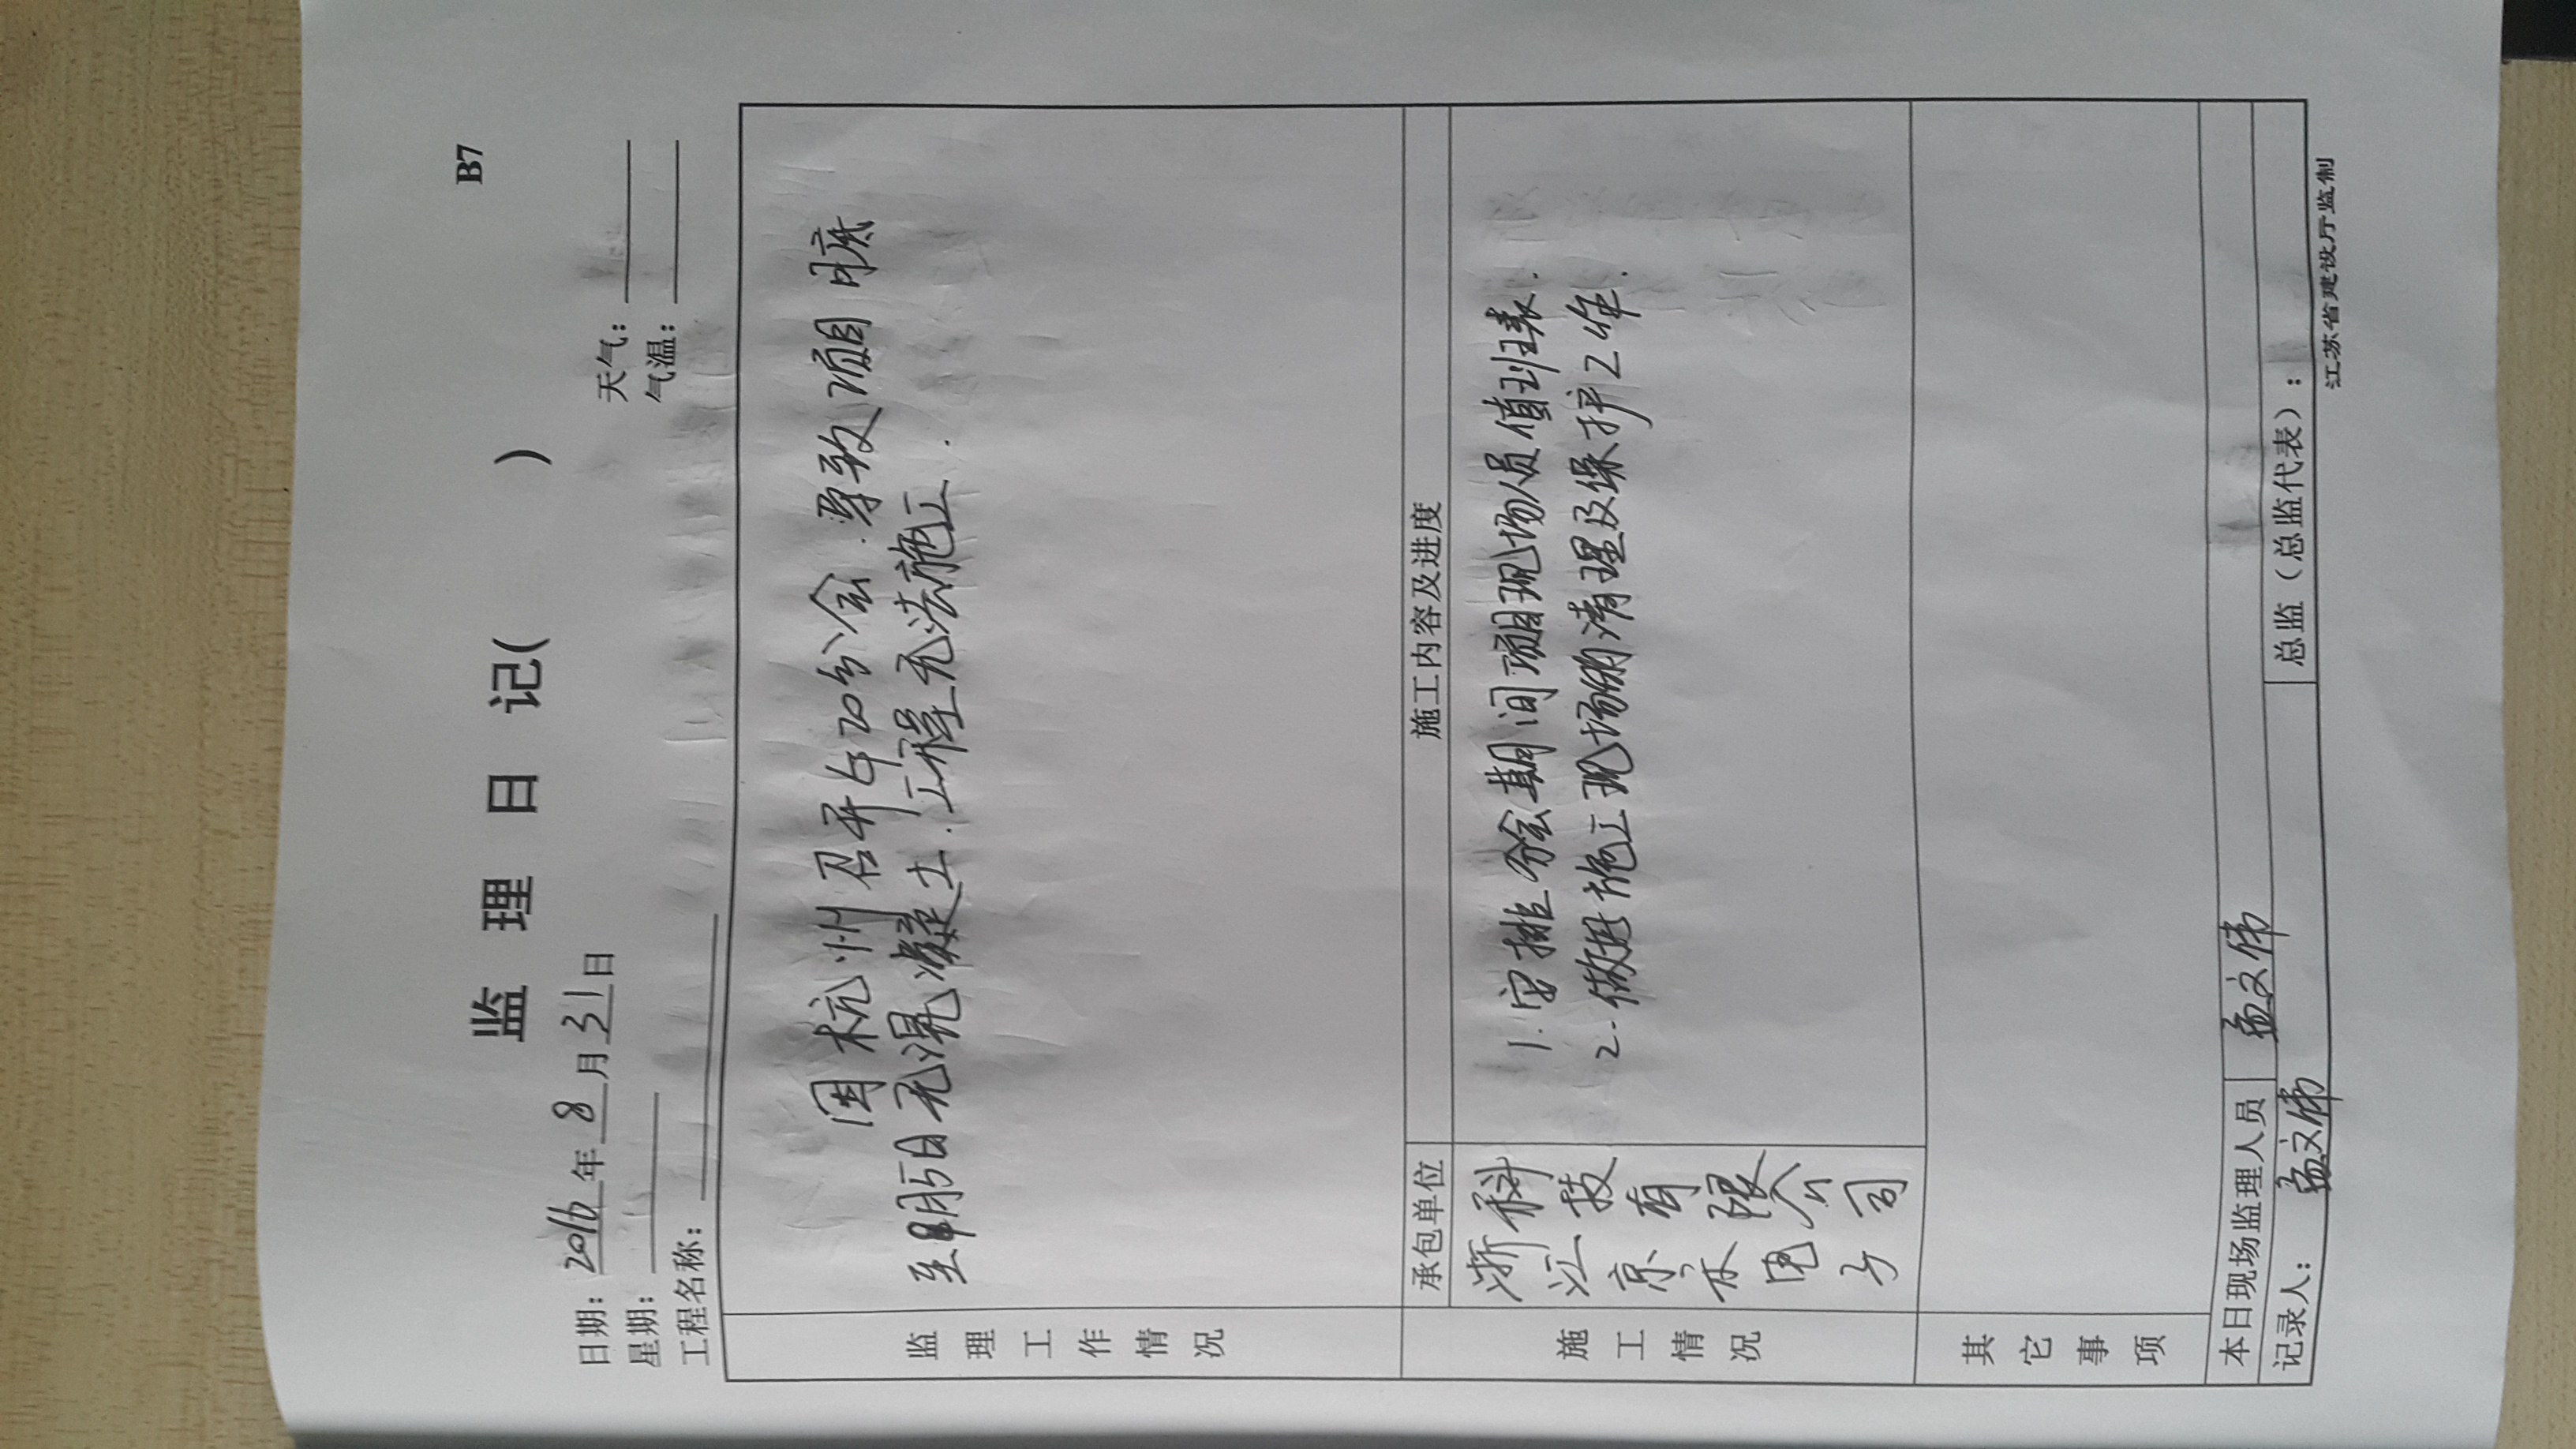 B7
监 理 日 记( )
日期: 2016 年 8 月 31 日 天气:
星期: 气温:
工程名称:
监理工作情况
因杭州召开G20分会.导致项目
无混凝土.工程无法施工.
施工情况
承包单位 施工内容及进度
浙江京 电子
科技有限公司
1.安排分会期间项目现场人员值班表.
2.做好施工现场的清理及保护工作.
其它事项
本日现场监理人员 孟文伟
记录人: 孟文伟 总监（总监代表）:
江苏省建设厅监制